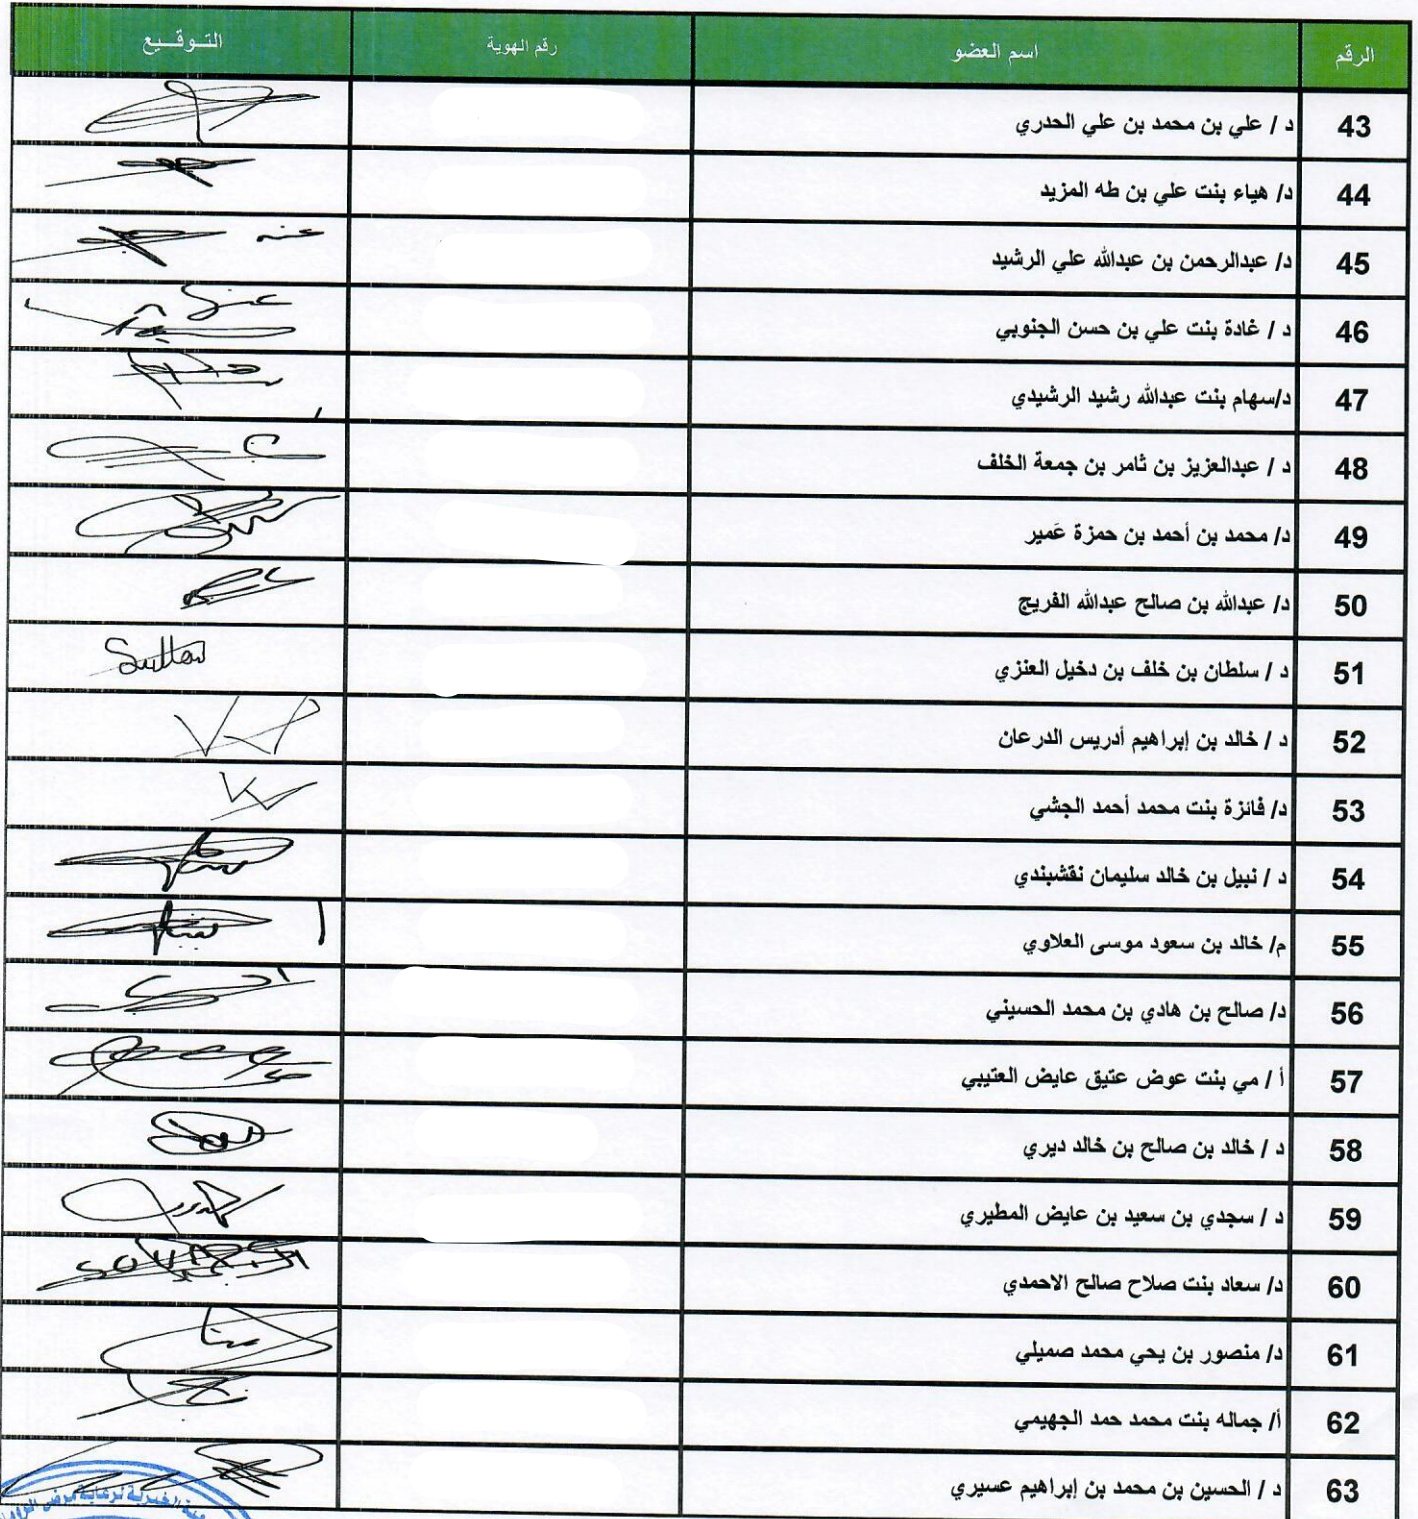 الرقم اسم العضو رقم الهوية التـوقـيـع
43 د / علي بن محمد بن علي الحدري
44 د/ هياء بنت علي بن طه المزيد
45 د/ عبدالرحمن بن عبدالله علي الرشيد
46 د / غادة بنت علي بن حسن الجنوبي
47 د/سهام بنت عبدالله رشيد الرشيدي
48 د / عبدالعزيز بن ثامر بن جمعة الخلف
49 د/ محمد بن أحمد بن حمزة عَمير
50 د/ عبدالله بن صالح عبدالله الفريج
51 د / سلطان بن خلف بن دخيل العنزي Sultan
52 د / خالد بن إبراهيم أدريس الدرعان
53 د/ فائزة بنت محمد أحمد الجشي
54 د / نبيل بن خالد سليمان نقشبندي
55 م/ خالد بن سعود موسى العلاوي
56 د/ صالح بن هادي بن محمد الحسيني
57 أ / مي بنت عوض عتيق عايض العتيبي
58 د / خالد بن صالح بن خالد ديري
59 د / سجدي بن سعيد بن عايض المطيري
60 د/ سعاد بنت صلاح صالح الاحمدي
61 د/ منصور بن يحي محمد صميلي
62 أ/ جماله بنت محمد حمد الجهيمي
63 د / الحسين بن محمد بن إبراهيم عسيري
الخيرية لرعاية مرضى